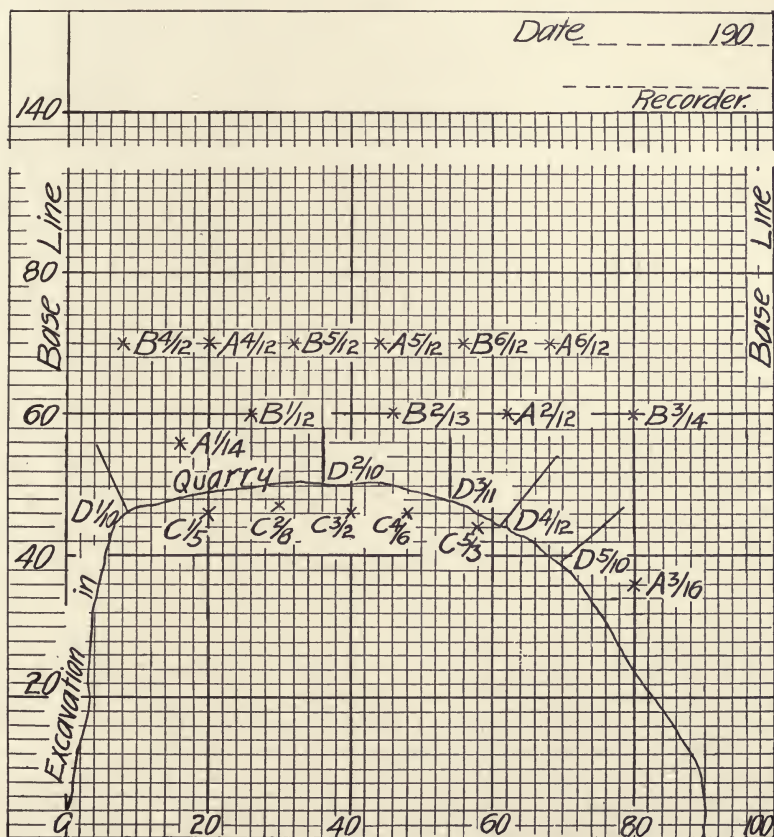 Date 190
Recorder.
140
Base Line
Base Line
80
B 4/12 A 4/12 B 5/12 A 5/12 B 6/12 A 6/12
60
B 1/12 B 2/13 A 2/12 B 3/14
A 1/14
Quarry
D 1/10 D 2/10 D 3/11 D 4/12 D 5/10
C 1/5 C 2/8 C 3/2 C 4/6 C 5/3
40
A 3/16
Excavation in
20
0 20 40 60 80 100